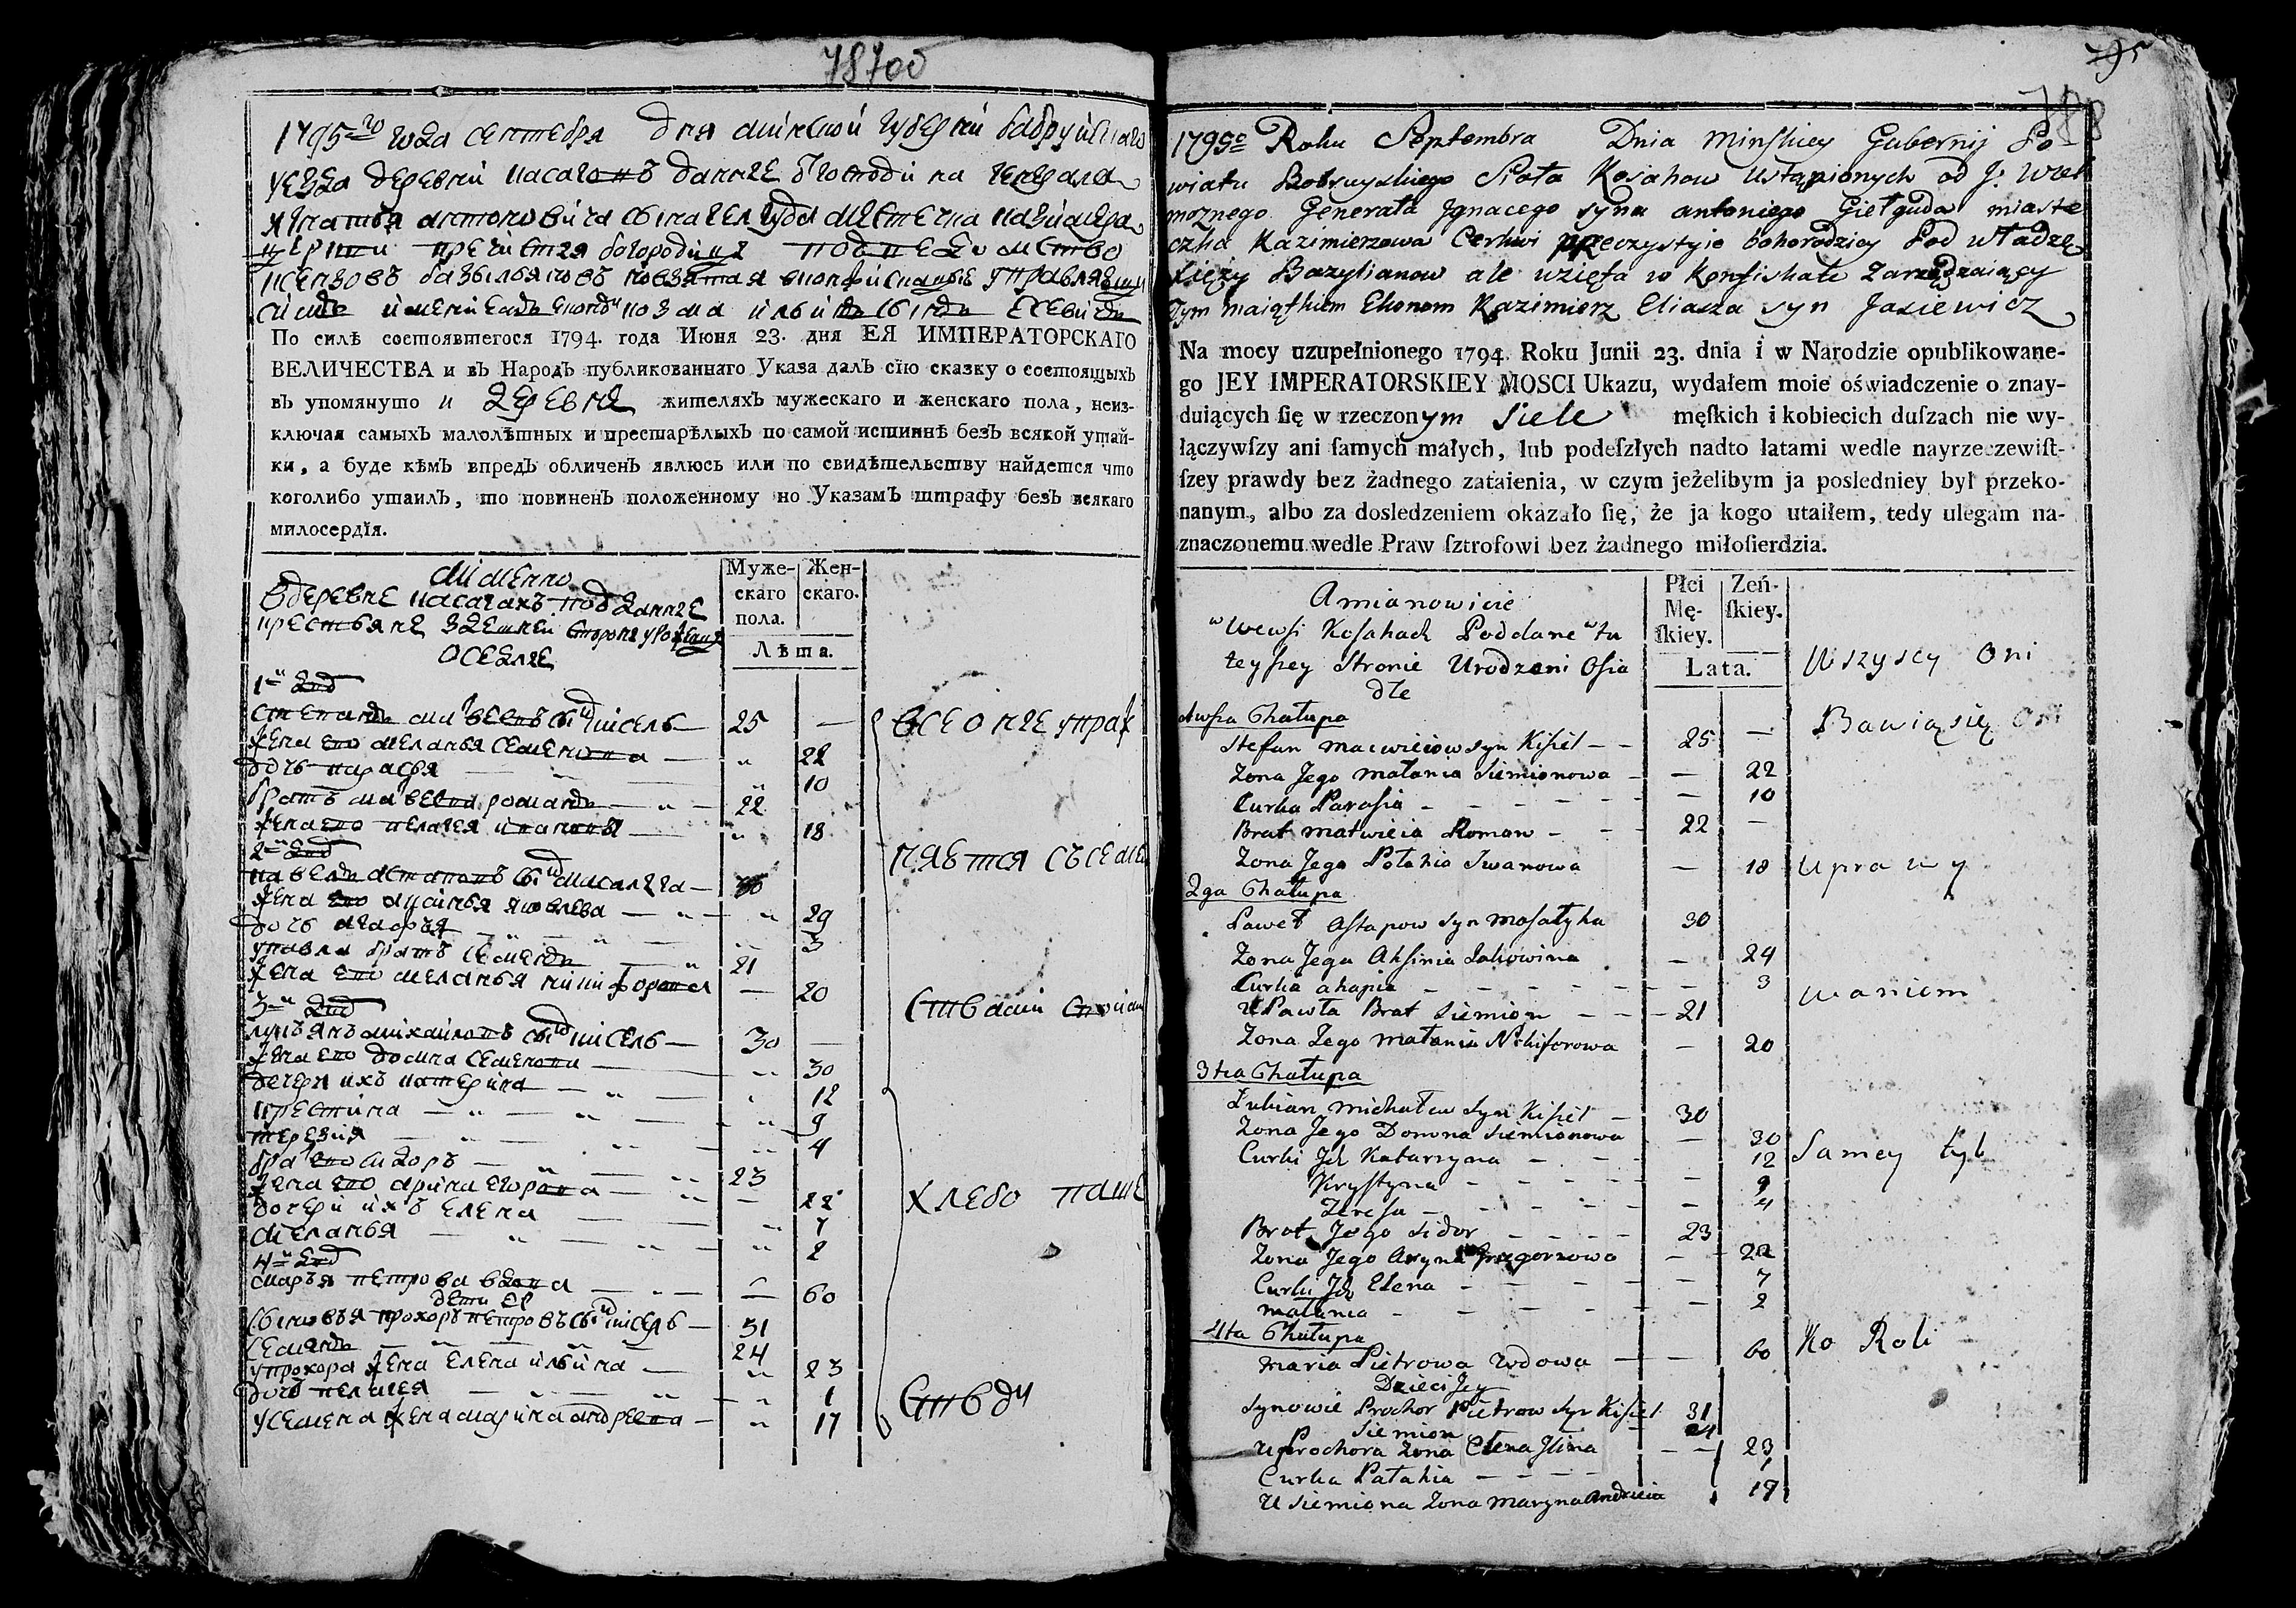 78700
1795го года сентебря дня минской губерни бабруйскаго
уезда деревни касаговъ данные от господина генерала
игнатья антоновича сына гелгуда местечка казимера
церкви пречистыя богородицы
ксензовъ базыльяновъ
По силѣ состоявшегося 1794. года Июня 23. дня ЕЯ ИМПЕРАТОРСКАГО
ВЕЛИЧЕСТВА и въ Народъ публикованнаго Указа далъ сію сказку о состоящыхъ
въ упомянуто й деревне жителяхъ мужескаго и женскаго пола, неиз-
ключая самыхъ малолѣтныхъ и престарѣлыхъ по самой истиннѣ безъ всякой утай-
ки, а буде кѣмъ впредъ обличенъ явлюсь или по свидѣтельству найдется что
коголибо утаилъ, то повиненъ положенному по Указамъ штрафу безъ всякаго
милосердія.
Муже-
скаго
пола.
Жен-
скаго.
Лѣта.
Имменно
в деревне касагахъ подданые
крестьяне здешней стороне урожеццы
оселые
1й двд
степанъ матвеевъ сынъ кисель — 25 —
жена его меланья семенова — " 22
дочь парасья — " 10
братъ матвеева романъ — " — 22
жена его пелагея иванова — " 18
2й двд
павелъ астаповъ сынъ масалыга — 30
жена его аксинья яковлева — " 29
дочь агафья — " 3
у павла братъ семенъ — " 21
жена его меланья никифорова — 20
3й двд
лукьянъ михайловъ сынъ кисель — 30 —
жена его домна семенова — " 30
дочери ихъ катерина — " 12
крестина — " — " 9
терезия — " — " 4
братъ его сидоръ — " 23
жена его арина егорова — " — 22
дочери ихъ елена — " 7
меланья — " — " 2
4й двд
марья петрова вдова — " — 60
дети ее
сыновья прохоръ петровъ сынъ кисель — 31
семенъ — " 24
у прохора жена елена ильина — " 23
дочь пелагея — " 1
у семена жена марина андреева — " 17
все оные упраж
няются съ семи
ствами своими
хлебо паше
ством
795
1795o Roku Septembra Dnia Minskiey Gubernij Po-
wiatu Bobruyskiego Sioła Kosahow ustąpionych od J. Wiel
możnego Generała Jgnacego syna antoniego Giełguda miaste
czka Kazimierzowa Cerkwi preczystyie bohorodzicy Pod władzę
Xięży Bazylianow ale wzięta w Konfiskatę Zarządzaiący
Tym maiątkiem Ekonom Kazimierz Eliasza syn Jasiewicz
Na mocy uzupełnionego 1794. Roku Junii 23. dnia i w Narodzie opublikowane-
go JEY IMPERATORSKIEY MOSCI Ukazu, wydałem moie oświadczenie o znay-
duiących ſię w rzeczonym Siele męſkich i kobiecich duſzach nie wy-
łączywſzy ani ſamych małych, lub podeſzłych nadto latami wedle nayrzeczewiſt-
ſzey prawdy bez żadnego zataienia, w czym jeżelibym ja posledniey był przeko-
nanym, albo za dosledzeniem okazało ſię, że ja kogo utaiłem, tedy ulegam na-
znaczonemu wedle Praw ſztrofowi bez żadnego miłoſierdzia.
Płci
Mę-
ſkiey.
Zeń-
ſkiey.
Lata.
Amianowicie
w Wewsi Kosahach Poddane w tu
teyszey Stronie Urodzeni Osia
dłe
1wsza Chałupa
Stefan Maćwieiow syn Kisiel — — 25 —
Zona Jego Małania Siemionowa — — 22
Curka Parasia — — 10
Brat matwieia Roman — 22 —
Zona Jego Połahia Iwanowa — 18
2ga Chałupa
Paweł Astapow syn Mosałyha 30
Zona Jego Aksinia Jakowina — 24
Curka ahapia — 3
U Pawła Brat Siemion — 21
Zona Jego Małania Nikiforowa — 20
3cia Chałupa
Łukian michałow syn Kisiel — 30
Zona Jego Domna Siemionowa — 30
Curki Jch Katarzyna — 12
Krystyna — 9
Teresa — 4
Brat Jego Sidor — 23
Zona Jego Aryna Grzegorzowa — 22
Curki Jch Elena — 7
małania — 2
4ta Chałupa
Maria Pietrowa Wdowa — — 60
Dzieci Jey
Synowie Prochor Pietrow syn Kisiel 31
Siemion 24
U Prochora Zona Elena Jlina — — 23
Curka Pałahia — 1
U Siemiona Zona Maryna Andreia 17
Wszyscy Oni
Bawią się
Upra wy
waniem
Samey tyl
Ko Roli